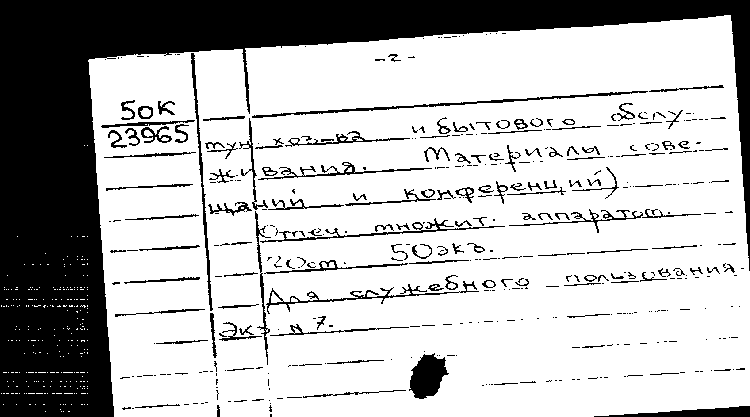 -2-
50К
23965
тун. хоз-ва и бытового обслу-
живания. Материалы сове-
щаний и конференций)
Отпеч. множит. аппаратом.
20см. 50экз.
Для служебного пользования.
Экз N 7.